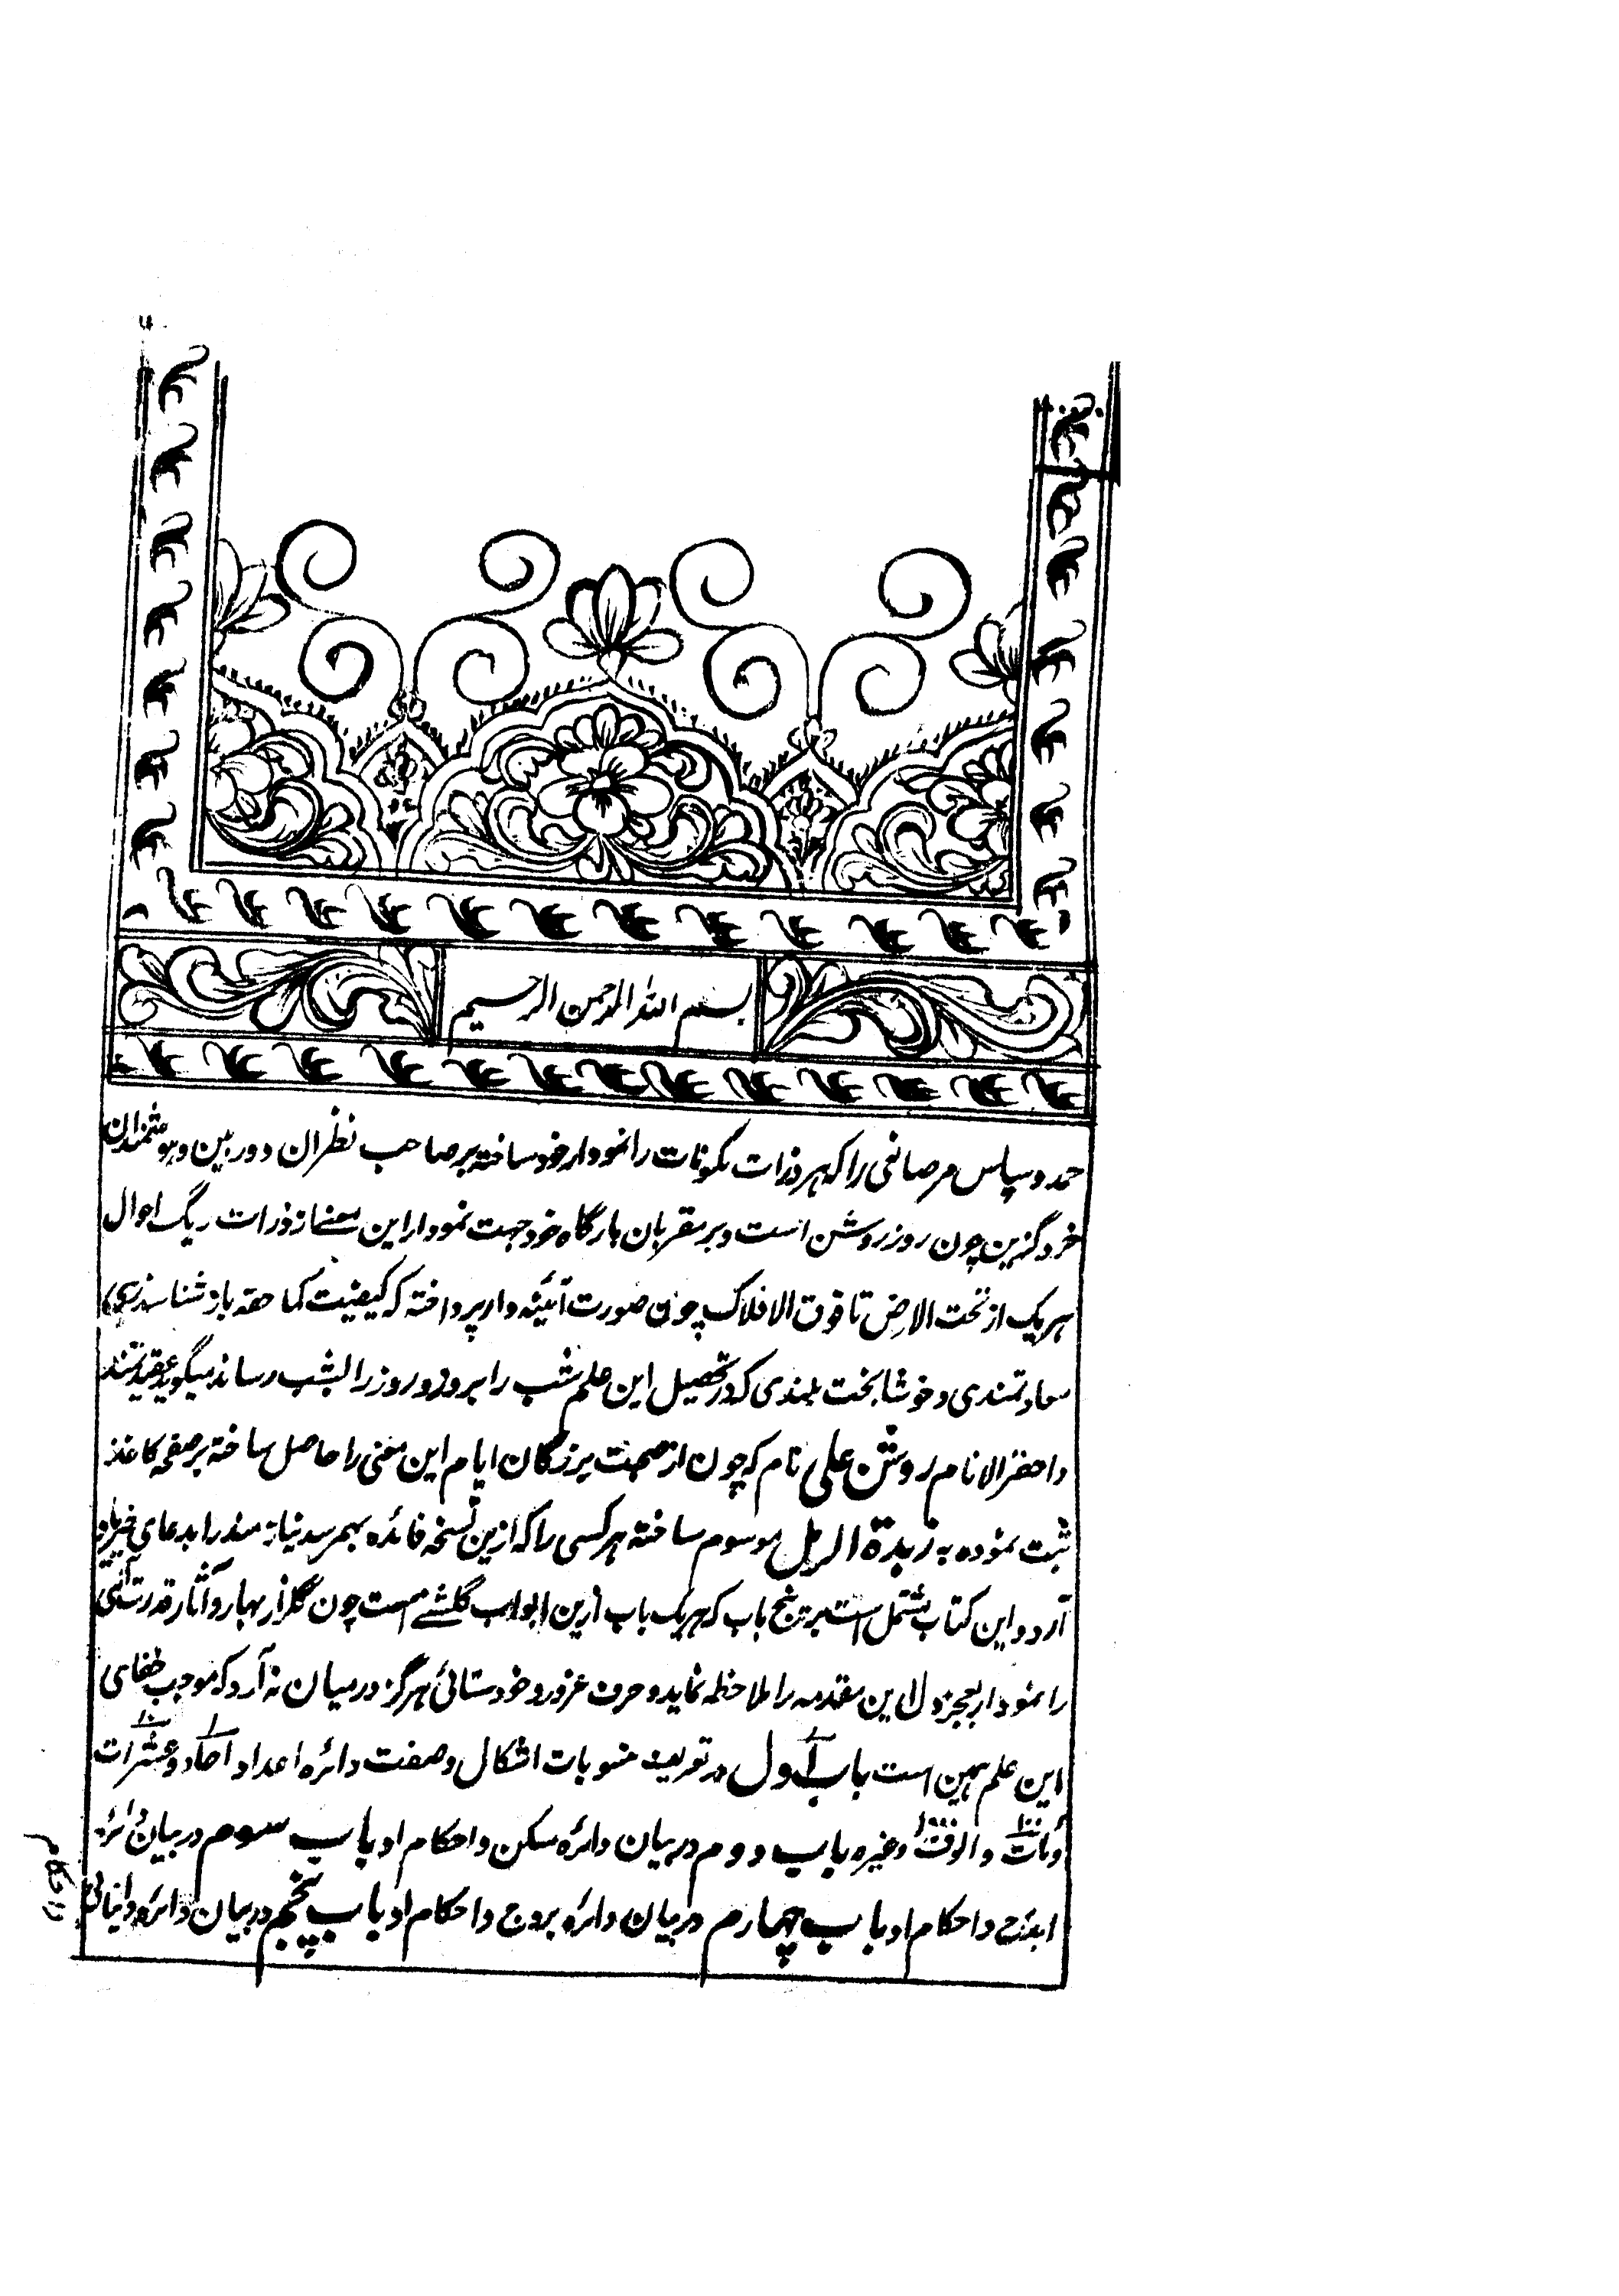 بسم الله الرحمن الرحیم
حمد و سپاس مر صانعی را که هر ذرات مکونات را نمودار خود ساخته بر صاحب نظران دوربین و هوشمندان
خرد گزین چون روز روشن است و بر مقربان بارگاه خود جهت نمودار این معنے از ذرات ریگ احوال
هر یک از تحت الارض تا فوق الافلاک چون صورت آئینه وار پرداخته که کیفیت کما حقه باز شناسند زهی
سعادتمندی و خوشا بخت بلندی که در تحصیل این علم شب را بروز و روز را بشب رساند میگوید عقیدتمند
و احقر الانام روشن علی نام که چون از صحبت بزرگان ایام این معنی را حاصل ساخته بر صفحه کاغذ
ثبت نموده به زبدة الرمل موسوم ساخته هر کسی را که ازین نسخه فائده بهمرسد نیاز مند را بدعای خیر یاد
آرد و این کتاب مشتمل است بر پنج باب که هر یک باب ازین ابواب گلشنے است چون گلزار بهار و آثار قدرت الٰہی
را نمودار بعجز دل این مقدمه را ملاحظه نماید و حرف غرور و خودستائی هرگز درمیان نه آرد که موجب خفای
این علم همین است باب اول در تعریف منسوبات اشکال و صفت دائره اعداد احاد و عشرات
و مات و الوف وغیره باب دوم در بیان دائره سکن و احکام او باب سوم در بیان دائره
ابدح و احکام او باب چهارم در بیان دائره بروج و احکام او باب پنجم در بیان دائره